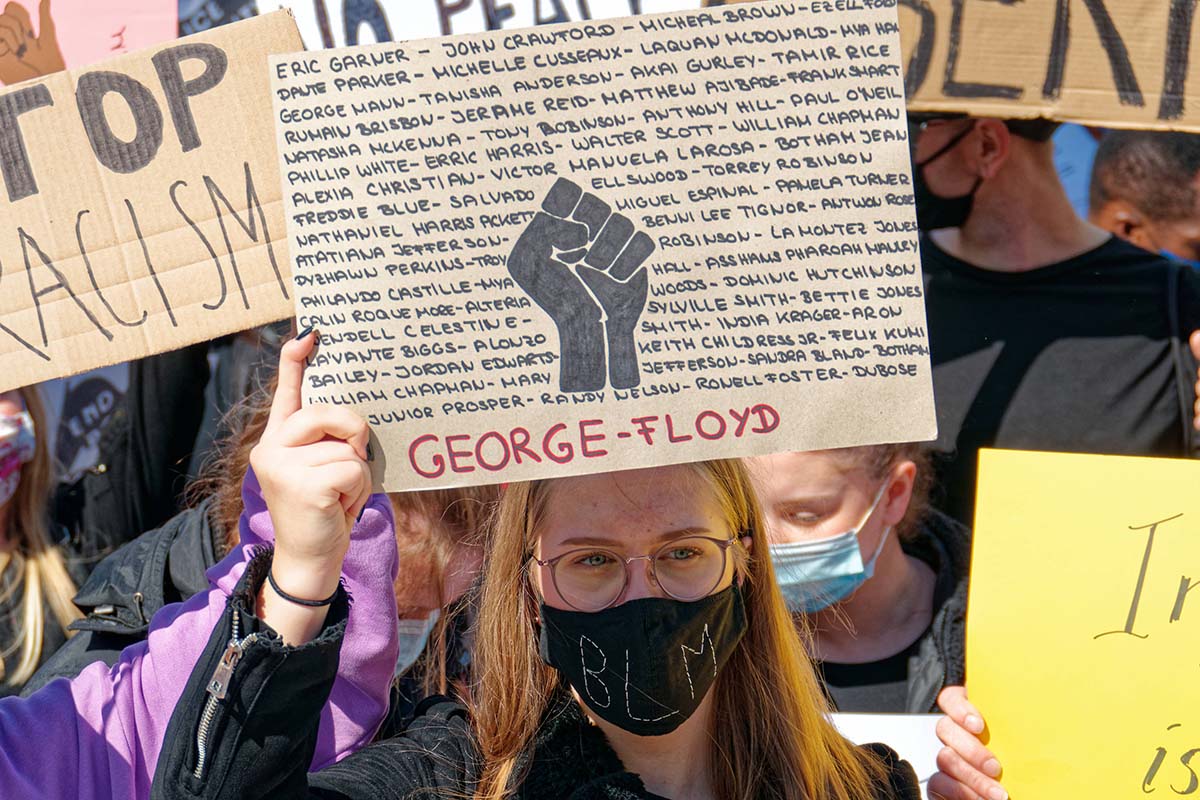 STOP
RACISM
NO PEACE
ERIC GARNER - JOHN CRAWFORD - MICHEAL BROWN - EZELL FORD
DANTE PARKER - MICHELLE CUSSEAUX - LAQUAN MCDONALD - MYA HALL
GEORGE MANN - TANISHA ANDERSON - AKAI GURLEY - TAMIR RICE
RUMAIN BRISBON - JERAME REID - MATTHEW AJIBADE - FRANK SMART
NATASHA MCKENNA - TONY ROBINSON - ANTHONY HILL - PAUL O'NEIL
PHILLIP WHITE - ERRIC HARRIS - WALTER SCOTT - WILLIAM CHAPMAN
ALEXIA CHRISTIAN - VICTOR MANUELA LAROSA - BOTHAM JEAN
FREDDIE BLUE - SALVADO ELLSWOOD - TORREY ROBINSON
NATHANIEL HARRIS PICKETT MIGUEL ESPINAL - PAMELA TURNER
ATATIANA JEFFERSON - BENNI LEE TIGNOR - ANTWON ROSE
DYZHAWN PERKINS - TROY ROBINSON - LA MONTEZ JONES
PHILANDO CASTILLE - MYA HALL - ASSHANS PHAROAH MANLY
CALIN ROQUEMORE - ALTERIA WOODS - DOMINIC HUTCHINSON
WENDELL CELESTINE - SYLVILLE SMITH - BETTIE JONES
LAVANTE BIGGS - ALONZO SMITH - INDIA KRAGER - ARON
BAILEY - JORDAN EDWARDS - KEITH CHILDRESS JR - FELIX KUMI
WILLIAM CHAPMAN - MARY JEFFERSON - SANDRA BLAND - BOTHAM
JUNIOR PROSPER - RANDY NELSON - RONELL FOSTER - DUBOSE
GEORGE-FLOYD
BLM
END
is